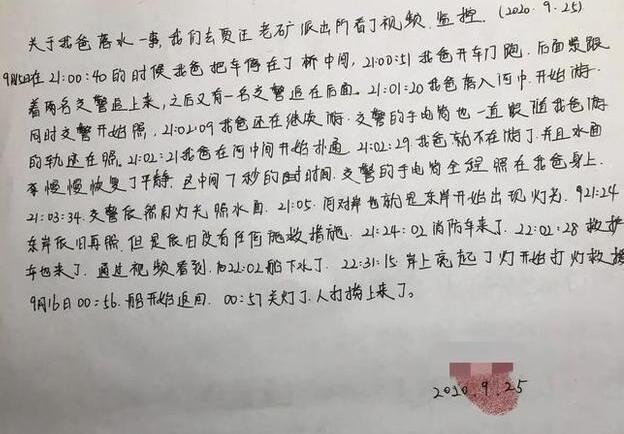 关于我爸落水一事,我们去贾汪老矿派出所看了视频、监控.(2020.9.25)
9月15日在21:00:40的时候我爸把车停在了桥中间,21:00:51我爸开车门跑.后面紧跟
着两名交警追上来,之后又有一名交警追在后面.21:01:20我爸落入河中.开始游.
同时交警开始照,21:02:09我爸还在继续游.交警的手电筒也一直跟随我爸游
的轨迹在照。21:02:21我爸在河中间开始扑通.21:02:29我爸就不在游了.并且水面
慢慢恢复了平静.这中间7秒的时间.交警的手电筒全程照在我爸身上.
21:03:34.交警依留用灯光照水面.21:05.河对岸也就是东岸开始出现灯光.921:24
东岸依旧再照.但是依旧没有任何施救措施.21:24:02消防车来了.22:02:28救护
车也来了.通过视频看到.22:02船下水了.22:31:15岸上亮起了灯开始打灯救援
9月16日00:56.船开始返回.00:57关灯了.人打捞上来了。
2020.9.25